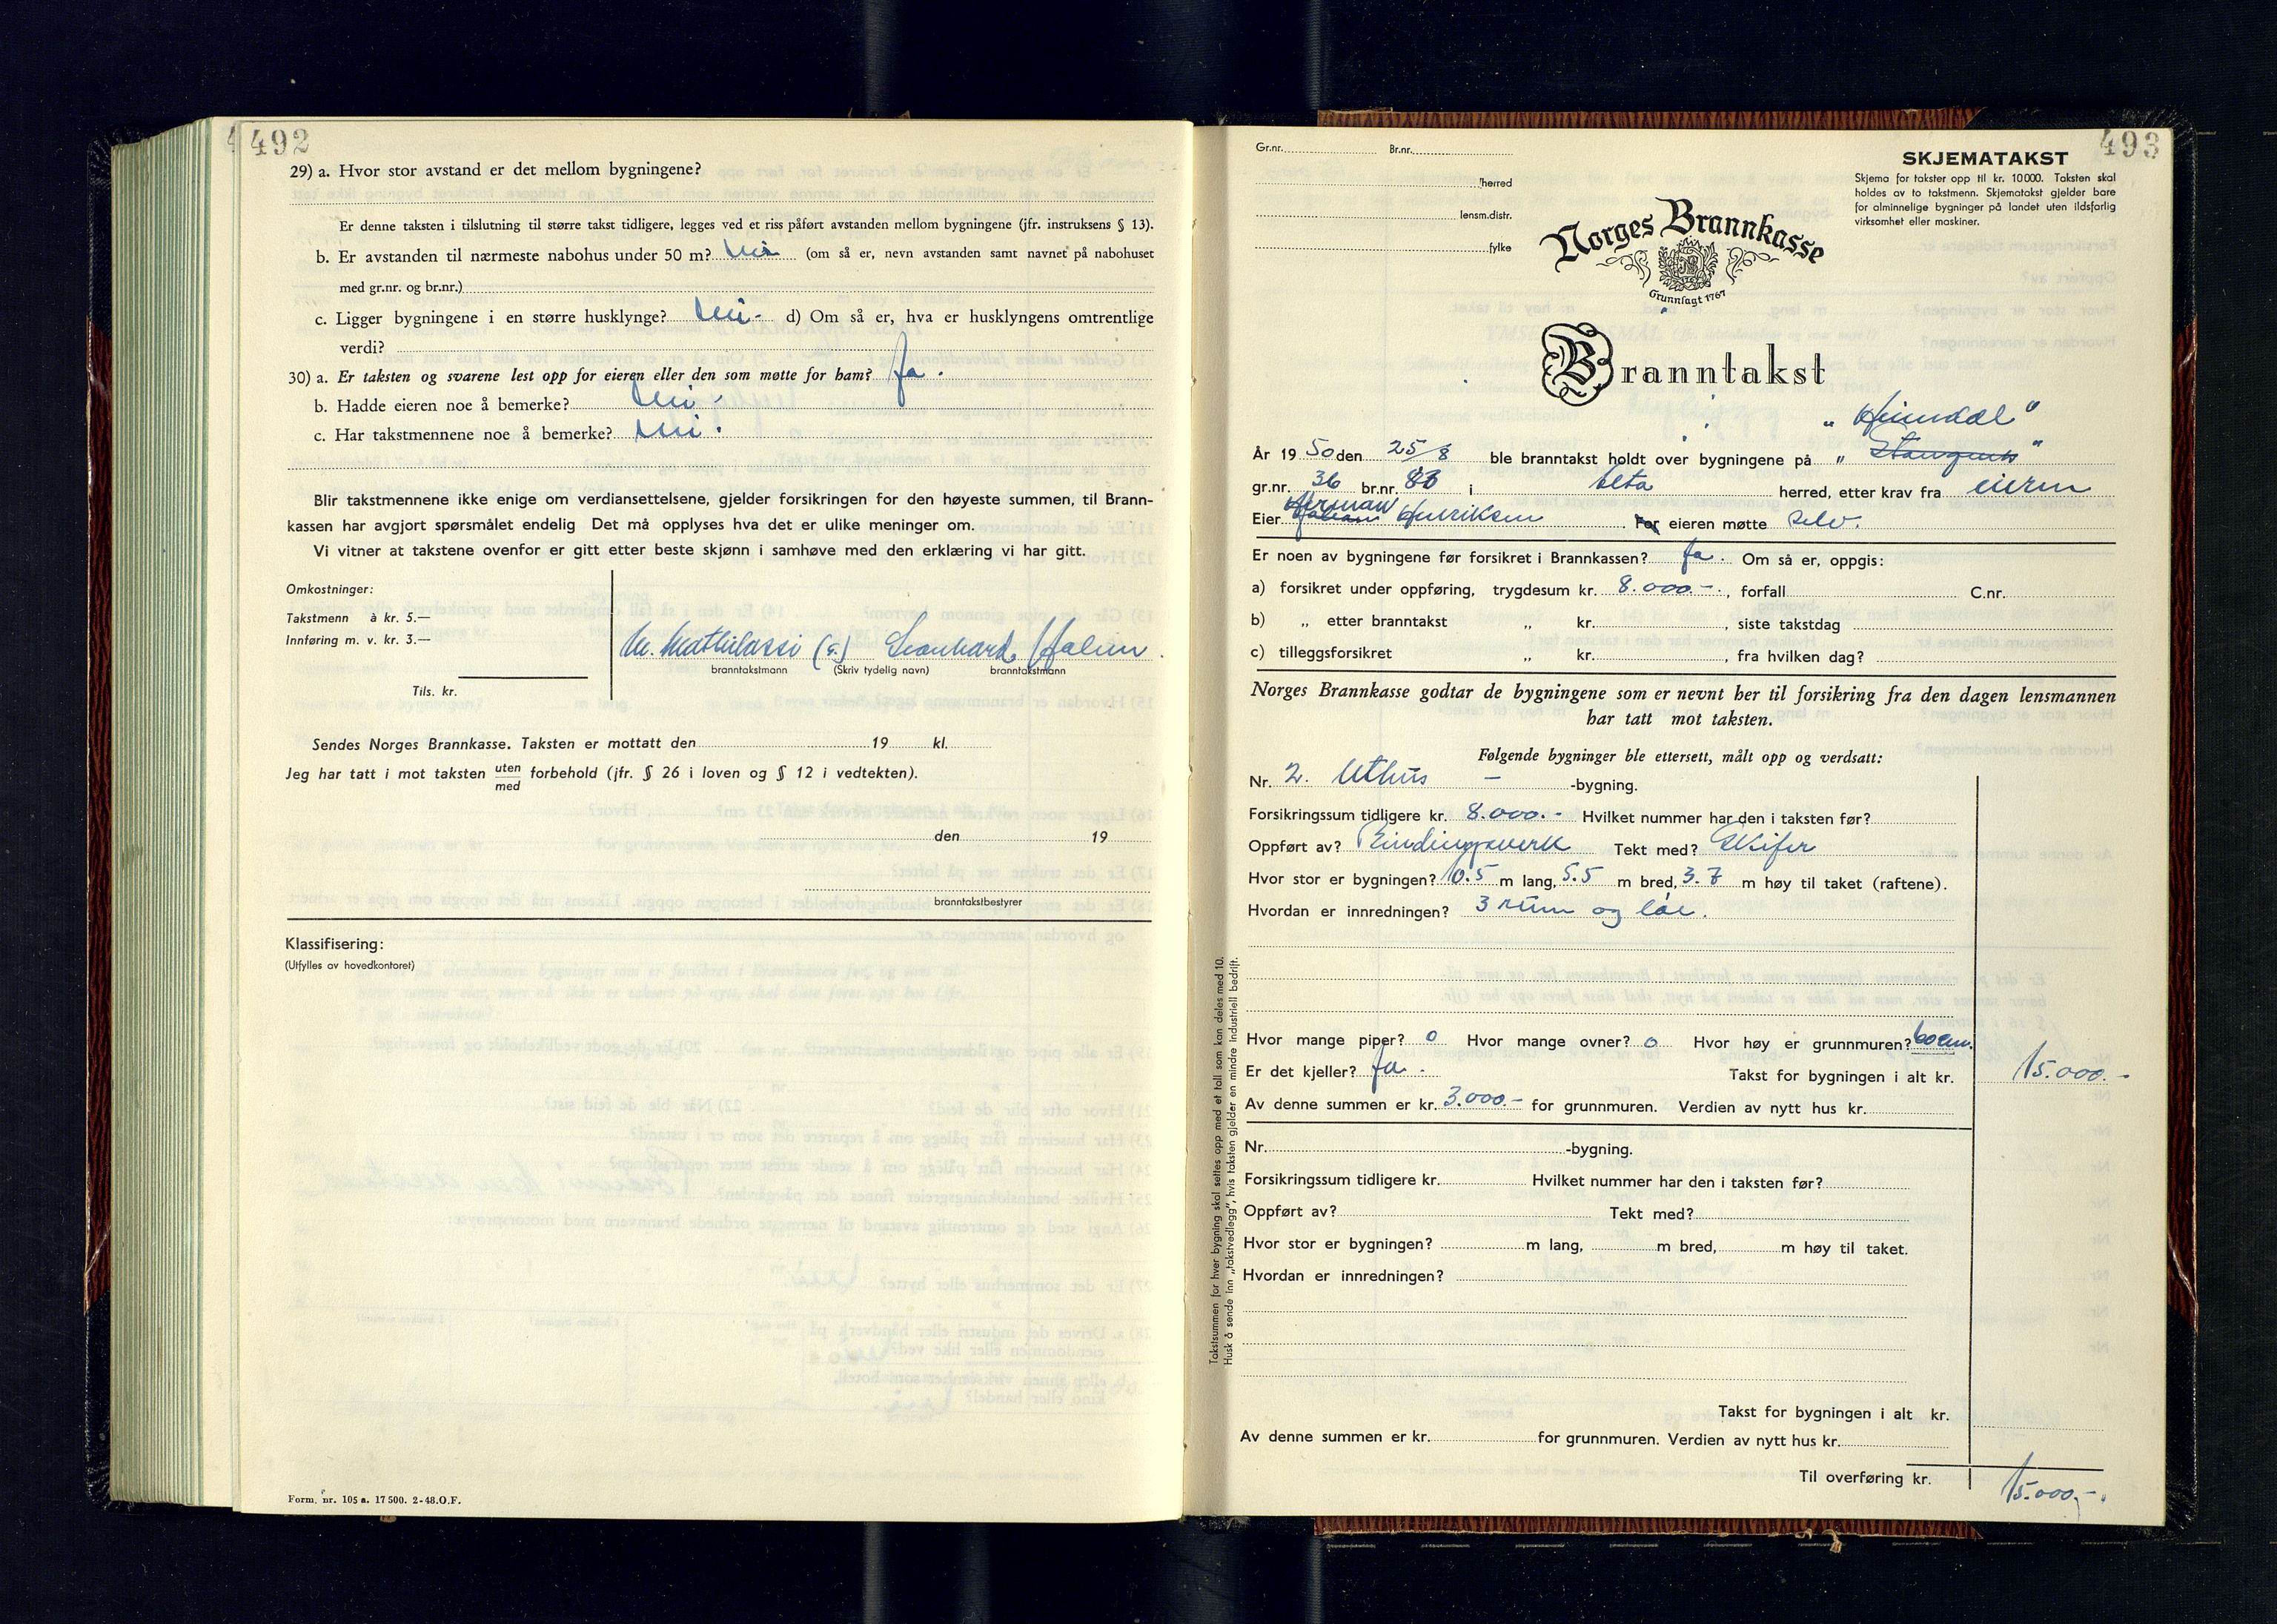 492
29) a. Hvor stor avstand er det mellom bygningene?
Er denne taksten i tilslutning til større takst tidligere, legges ved et riss påført avstanden mellom bygningene (jfr. instruksens § 13).
b. Er avstanden til nærmeste nabohus under 50 m? Nei (om så er, nevn avstanden samt navnet på nabohuset
med gr.nr. og br.nr.)
c. Ligger bygningene i en større husklynge? Nei- d) Om så er, hva er husklyngens omtrentlige
verdi?
30) a. Er taksten og svarene lest opp for eieren eller den som møtte for ham? Ja.
b. Hadde eieren noe å bemerke? Nei.
c. Har takstmennene noe å bemerke? Nei.
Blir takstmennene ikke enige om verdiansettelsene, gjelder forsikringen for den høyeste summen, til Brann-
kassen har avgjort spørsmålet endelig Det må opplyses hva det er ulike meninger om.
Vi vitner at takstene ovenfor er gitt etter beste skjønn i samhøve med den erklæring vi har gitt.
Omkostninger:
Takstmenn à kr. 5.—
Innføring m. v. kr. 3.—
Tils. kr.
M. Mathilassi (s.) Leonhard Halen.
branntakstmann (Skriv tydelig navn) branntakstmann
Sendes Norges Brannkasse. Taksten er mottatt den 19 kl.
Jeg har tatt i mot taksten uten med forbehold (jfr. § 26 i loven og § 12 i vedtekten).
den 19
branntakstbestyrer
Klassifisering:
(Utfylles av hovedkontoret)
Form. nr. 105 a. 17 500. 2-48. O.F.
493
Gr.nr. Br.nr.
herred
lensm.distr.
fylke
SKJEMATAKST
Skjema for takster opp til kr. 10 000. Taksten skal
holdes av to takstmenn. Skjematakst gjelder bare
for alminnelige bygninger på landet uten ildsfarlig
virksomhet eller maskiner.
Norges Brannkasse
Grunnlagt 1767
Branntakst
"Heimdal"
År 1950 den 25/8 ble branntakst holdt over bygningene på " "
gr.nr. 36 br.nr. i Alta herred, etter krav fra eieren
Eier Herman Henriksen For eieren møtte selv.
Er noen av bygningene før forsikret i Brannkassen? Ja. Om så er, oppgis:
a) forsikret under oppføring, trygdesum kr. 8.000.-, forfall C.nr.
b) „ etter branntakst „ kr. , siste takstdag
c) tilleggsforsikret „ kr. , fra hvilken dag?
Norges Brannkasse godtar de bygningene som er nevnt her til forsikring fra den dagen lensmannen
har tatt mot taksten.
Følgende bygninger ble ettersett, målt opp og verdsatt:
Nr. 2. Uthus - -bygning.
Forsikringssum tidligere kr. 8.000.- Hvilket nummer har den i taksten før?
Oppført av? Bindingsverk Tekt med? Skifer
Hvor stor er bygningen? 10.5 m lang, 5.5 m bred, 3.7 m høy til taket (raftene).
Hvordan er innredningen? 3 rum og låe.
Hvor mange piper? 0 Hvor mange ovner? 0 Hvor høy er grunnmuren? 60 cm.
Er det kjeller? Ja. Takst for bygningen i alt kr. 15.000.-
Av denne summen er kr. 3.000.- for grunnmuren. Verdien av nytt hus kr.
Nr. -bygning.
Forsikringssum tidligere kr. Hvilket nummer har den i taksten før?
Oppført av? Tekt med?
Hvor stor er bygningen? m lang, m bred, m høy til taket.
Hvordan er innredningen?
Takst for bygningen i alt kr.
Av denne summen er kr. for grunnmuren. Verdien av nytt hus kr.
Til overføring kr. 15.000.-.
Takstsummen for hver bygning skal settes opp med et tall som kan deles med 10.
Husk å sende inn „takstvedlegg", hvis taksten gjelder en mindre industriell bedrift.